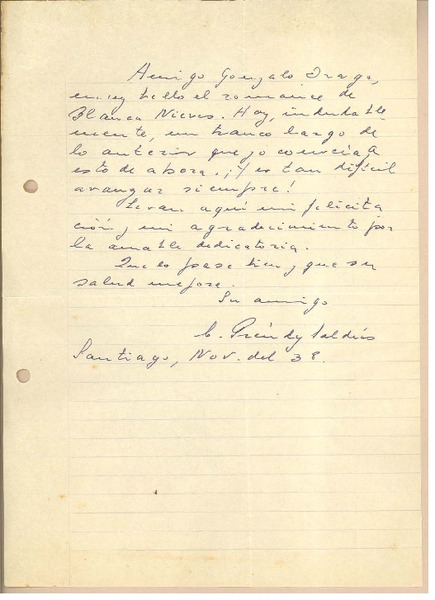 Amigo Gonzalo Drago,
muy bello el romance de
Blanca Nieves. Hay, indudable-
mente, un tranco largo de
lo anterior que yo conocía a
esto de ahora. ¡Y es tan difícil
avanzar siempre!
Le van aquí mi felicita
ción y mi agradecimiento por
la amable dedicatoria.
Que lo pase bien y que su
salud mejore.
Su amigo
C. Préndez Saldías
Santiago, Nov. del 38.